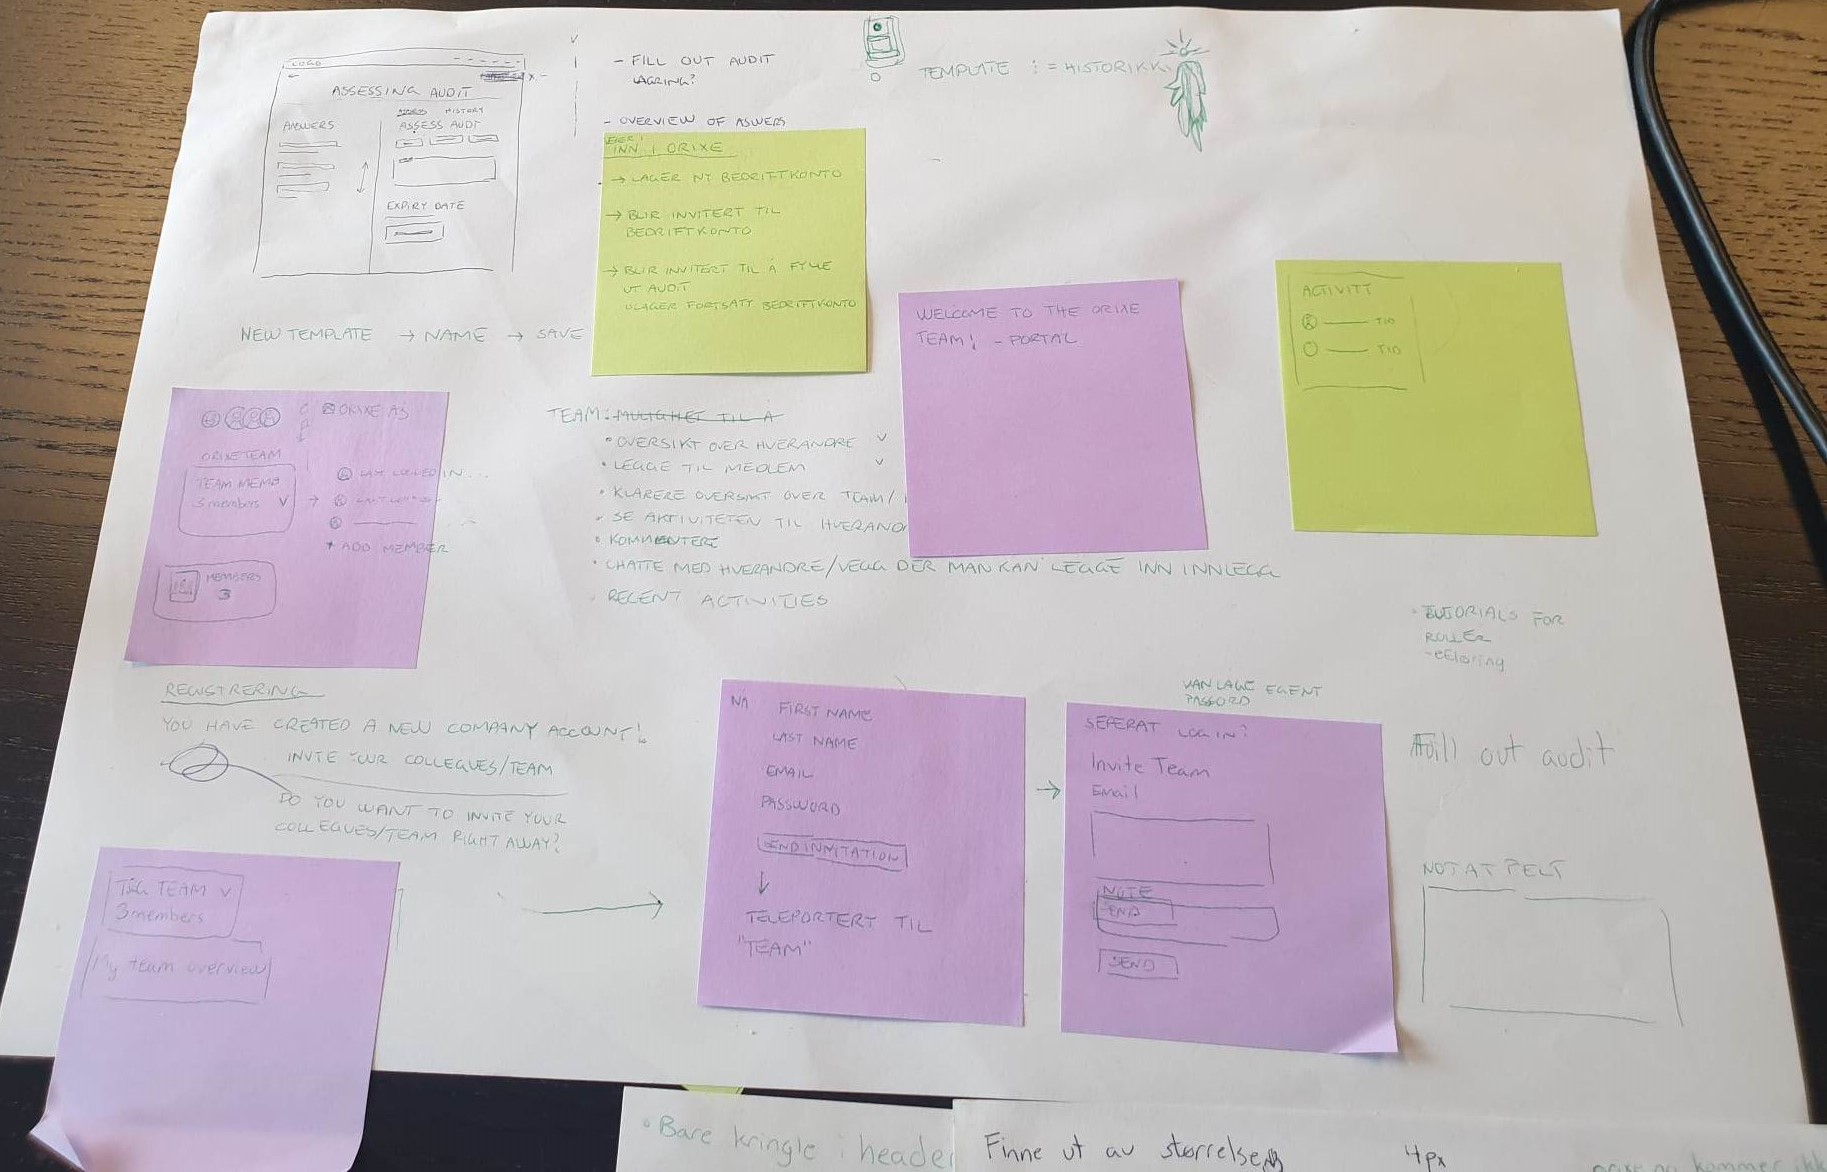 LOGO
ASSESSING AUDIT
HISTORY
ANSWERS
ASSESS AUDIT
EXPIRY DATE
- FILL OUT AUDIT
LAGRING?
- OVERVIEW OF ASWERS
TEMPLATE : = HISTORIKK
INN I ORIXE
→ LAGER NY BEDRIFTKONTO
→ BLIR INVITERT TIL
BEDRIFTKONTO
→ BLIR INVITERT TIL Å FYLLE
UT AUDIT
FORTSATT BEDRIFTKONTO
NEW TEMPLATE → NAME → SAVE
WELCOME TO THE ORIXE
TEAM! - PORTAL
ACTIVITY
TID
TID
ORIXE AS
ORIXE TEAM
TEAM MEMB
3 members V
LAST LOGGED IN...
+ ADD MEMBER
MEMBERS
3
TEAM: MULIGHET TIL Å
• OVERSIKT OVER HVERANDRE V
• LEGGE TIL MEDLEM V
• KLARERE OVERSIKT OVER TEAM/
• SE AKTIVITETEN TIL HVERAND
• KOMMENTERE
• CHATTE MED HVERANDRE/VEGG DER MAN KAN LEGGE INN INNLEGG
• RECENT ACTIVITIES
• TUTORIALS FOR
ROLLER
REGISTRERING
YOU HAVE CREATED A NEW COMPANY ACCOUNT!
INVITE YOUR COLLEGUES/TEAM
DO YOU WANT TO INVITE YOUR
COLLEGUES/TEAM RIGHT AWAY?
TEAM V
3 members
My team overview
FIRST NAME
LAST NAME
EMAIL
PASSWORD
SEND INVITATION
↓
TELEPORTERT TIL
"TEAM"
→
EGENT
PASSORD
SEPERAT LOG IN?
Invite Team
Email
NOTE
SEND
SEND
Fill out audit
NOTATFELT
• Bare kringle i header
Finne ut av størrelsen
4px